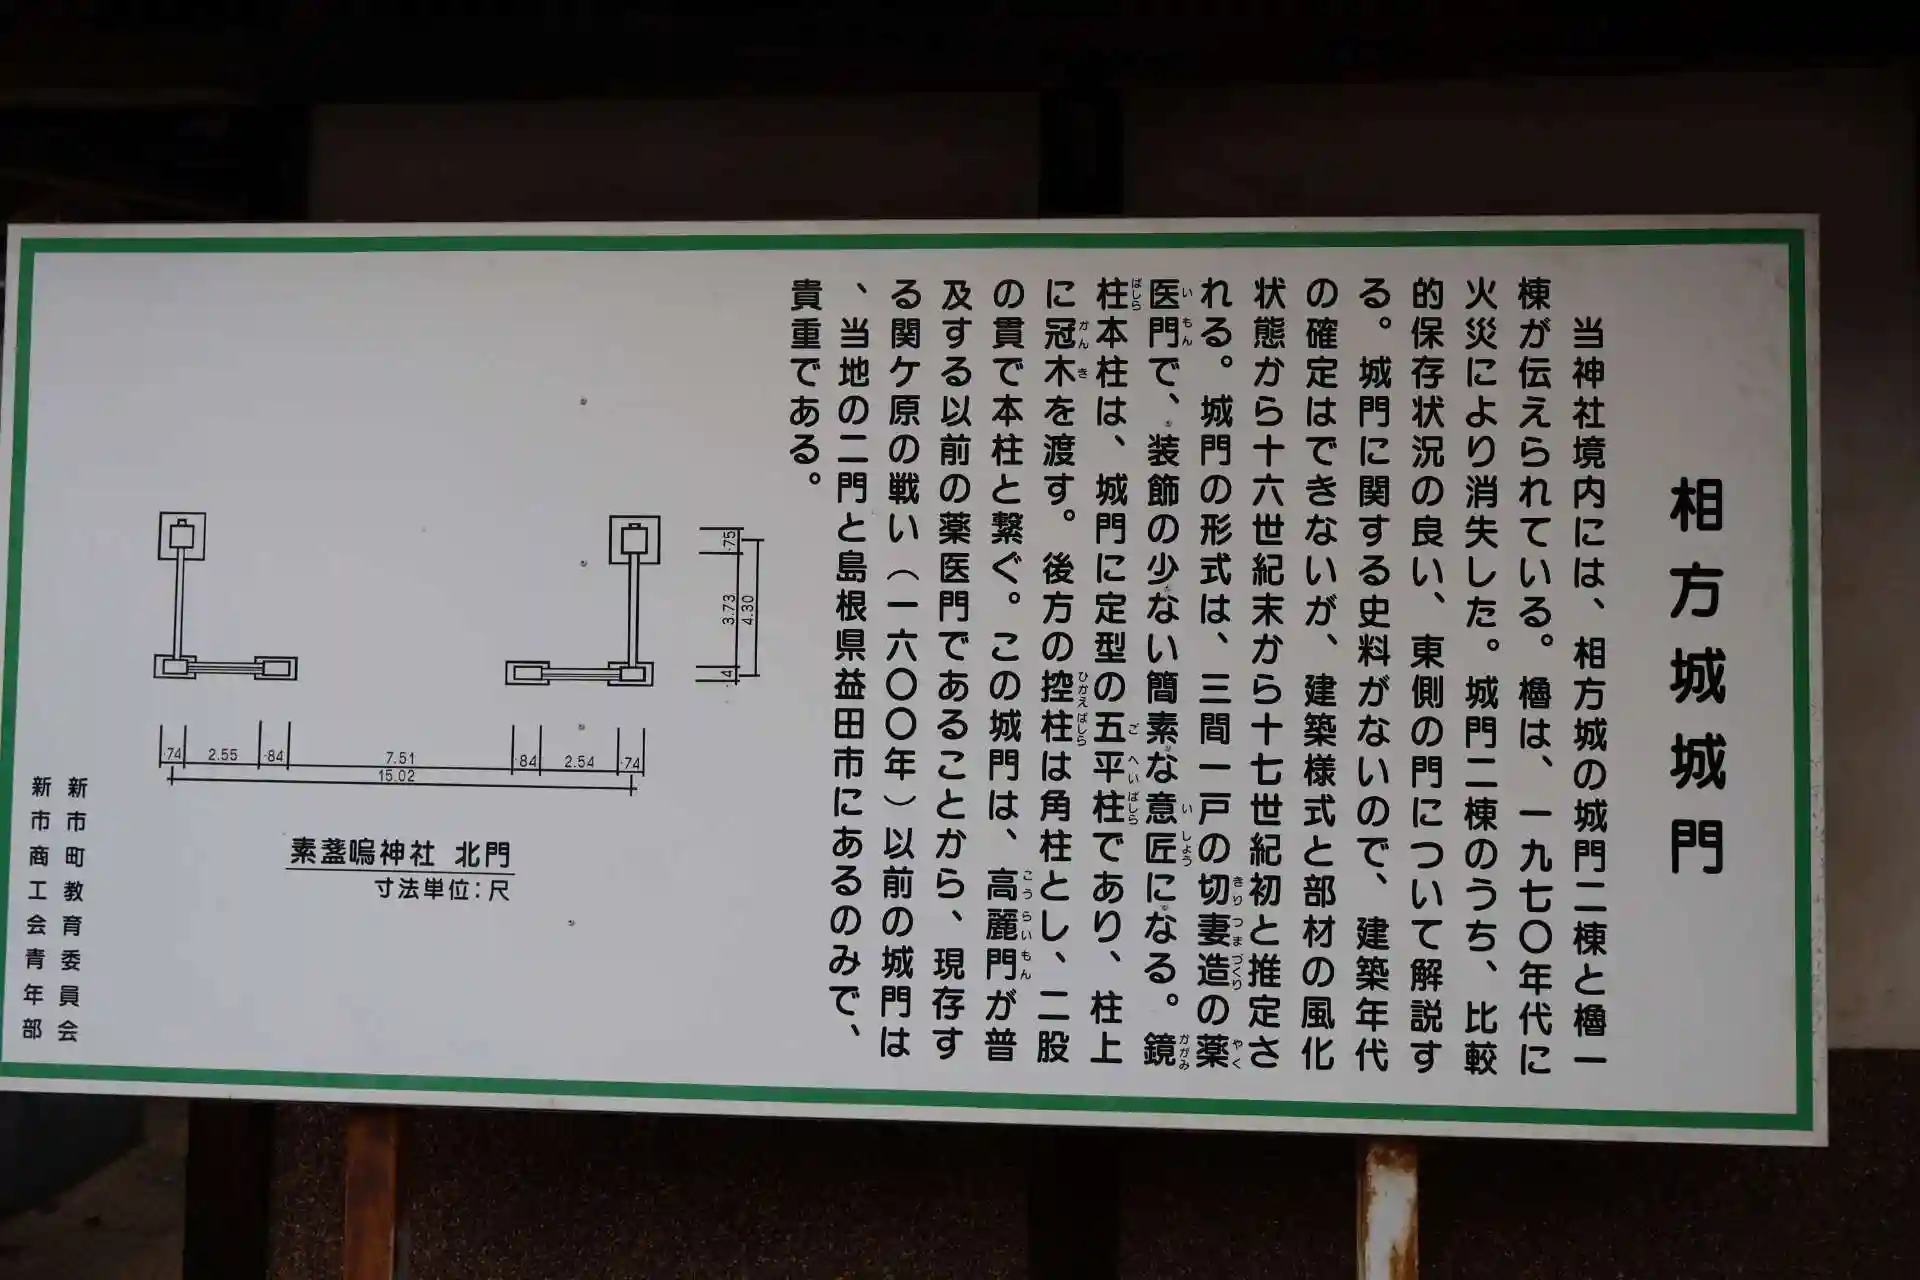 相方城城門
当神社境内には、相方城の城門二棟と櫓一
棟が伝えられている。櫓は、一九七〇年代に
火災により消失した。城門二棟のうち、比較
的保存状況の良い、東側の門について解説す
る。城門に関する史料がないので、建築年代
の確定はできないが、建築様式と部材の風化
状態から十六世紀末から十七世紀初と推定さ
れる。城門の形式は、三間一戸の切妻造の薬
きりつまづくり やく
医門で、装飾の少ない簡素な意匠になる。鏡
いもん いしょう かがみ
柱本柱は、城門に定型の五平柱であり、柱上
ばしら ごへいばしら
に冠木を渡す。後方の控柱は角柱とし、二股
かんき ひかえばしら
の貫で本柱と繋ぐ。この城門は、高麗門が普
こうらいもん
及する以前の薬医門であることから、現存す
る関ケ原の戦い（一六〇〇年）以前の城門は
、当地の二門と島根県益田市にあるのみで、
貴重である。
.75
3.73
4.30
.4
.74 2.55 .84 7.51 .84 2.54 .74
15.02
素盞嗚神社 北門
寸法単位：尺
新市町教育委員会
新市商工会青年部